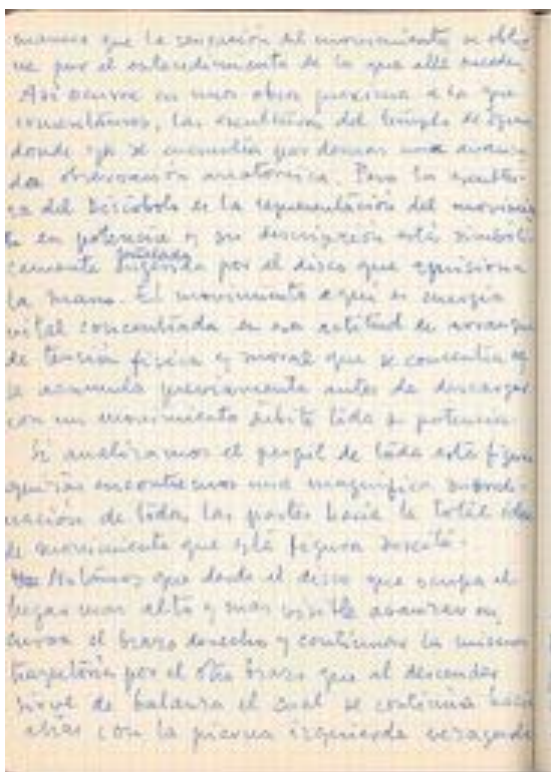 manera que la sensación del movimiento se obtie
ne por el entendimiento de lo que allí sucede.
Así ocurre en unas obras próxima a la que
comentamos, las esculturas del templo de Egina
donde ya se encuentra por demás una avanza
da observación anatómica. Pero la escultu
ra del Discóbolo es la representación del movimien
to en potencia y su descripción está simbóli
camente sugerida por el disco que aprisiona
la mano. El movimiento aquí es energía
vital concentrada en esa actitud de arranque
de tensión física y moral que se concentra y
se acumula previamente antes de descargar
con un movimiento súbito toda su potencia.
Si analizamos el perfil de toda esta figura
quizás encontremos una magnífica subordi
nación de todas las partes hacia la total idea
de movimiento que esta figura suscita.
Notamos que desde el disco que ocupa el
lugar mas alto y mas visible avanzan en
curva el brazo derecho y continuar la misma
trayectoria por el otro brazo que al descender
sirve de balanza el cual se continua hacia
atrás con la pierna izquierda